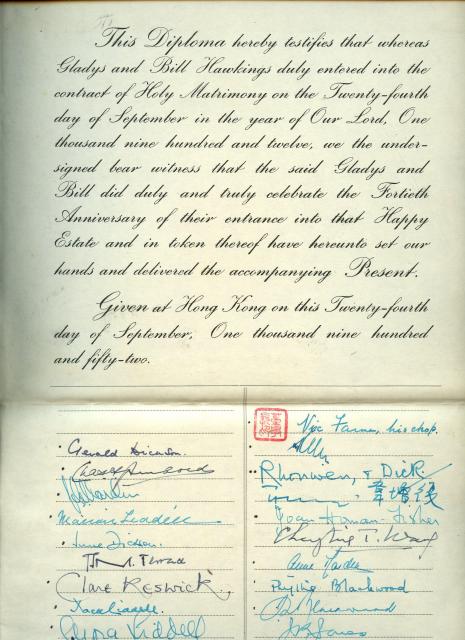 This Diploma hereby testifies that whereas
Gladys and Bill Hawkings duly entered into the
contract of Holy Matrimony on the Twenty-fourth
day of September in the year of Our Lord, One
thousand nine hundred and twelve, we the under-
signed bear witness that the said Gladys and
Bill did duly and truly celebrate the Fortieth
Anniversary of their entrance into that Happy
Estate and in token thereof have hereunto set our
hands and delivered the accompanying Present.
Given at Hong Kong on this Twenty-fourth
day of September, One thousand nine hundred
and fifty-two.
Gerald Dickson.
Marion Liddell
Anne Dickson.
Clare Keswick.
Liddell
his chop.
Rhonwen, & Dick.
Joan Homan-Fisher
T. Wang
Anne
Phyllis Blackwood